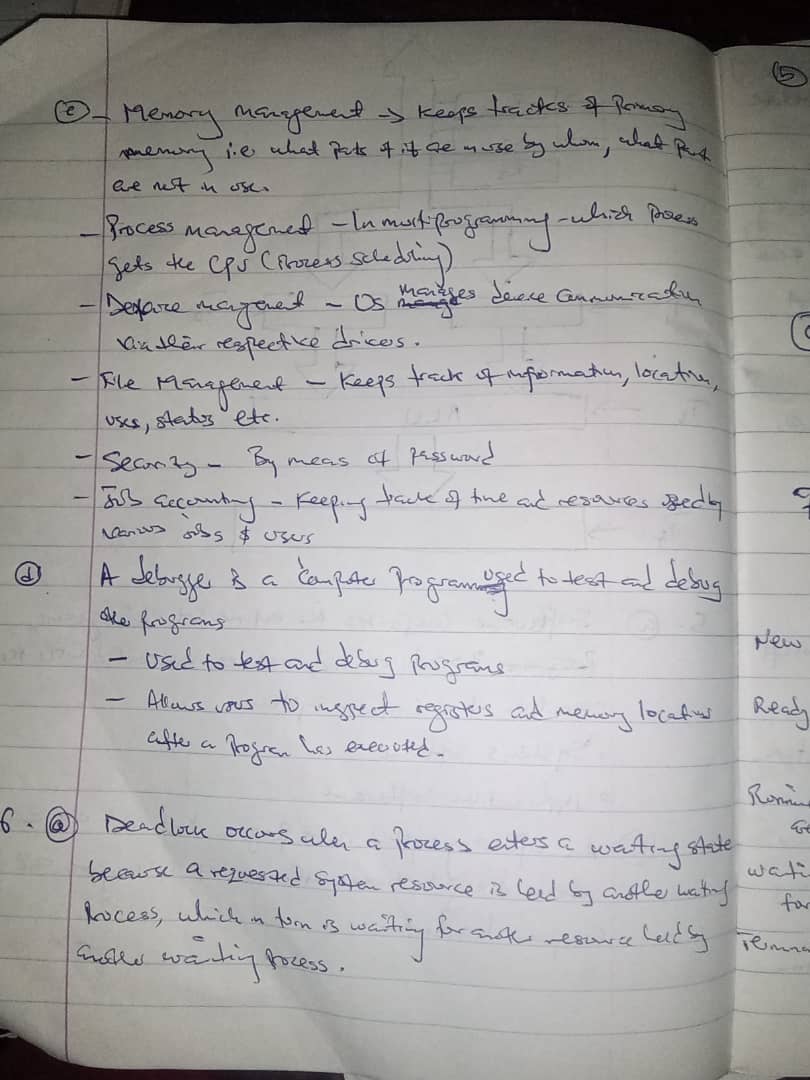 (e) - Memory management → keeps tracks of Primary
memory i.e what parts of it are in use by whom, what part
are not in use.
- Process management - In multiprogramming - which process
gets the CPU (Process Scheduling)
- management - OS manages device communication
via their respective drivers.
- File Management - keeps track of information, location,
uses, status etc.
- Security - By means of password
- Job accounting - Keeping track of time and resources used by
various jobs & users
(d) A debugger is a Computer Program used to test and debug
the programs
- Used to test and debug programs
- Allows users to inspect registers and memory locations
after a program has executed.
6. (a) Deadlock occurs when a process enters a waiting state
because a requested system resource is held by another waiting
process, which in turn is waiting for another resource held by
another waiting process.
(5)
New
Ready